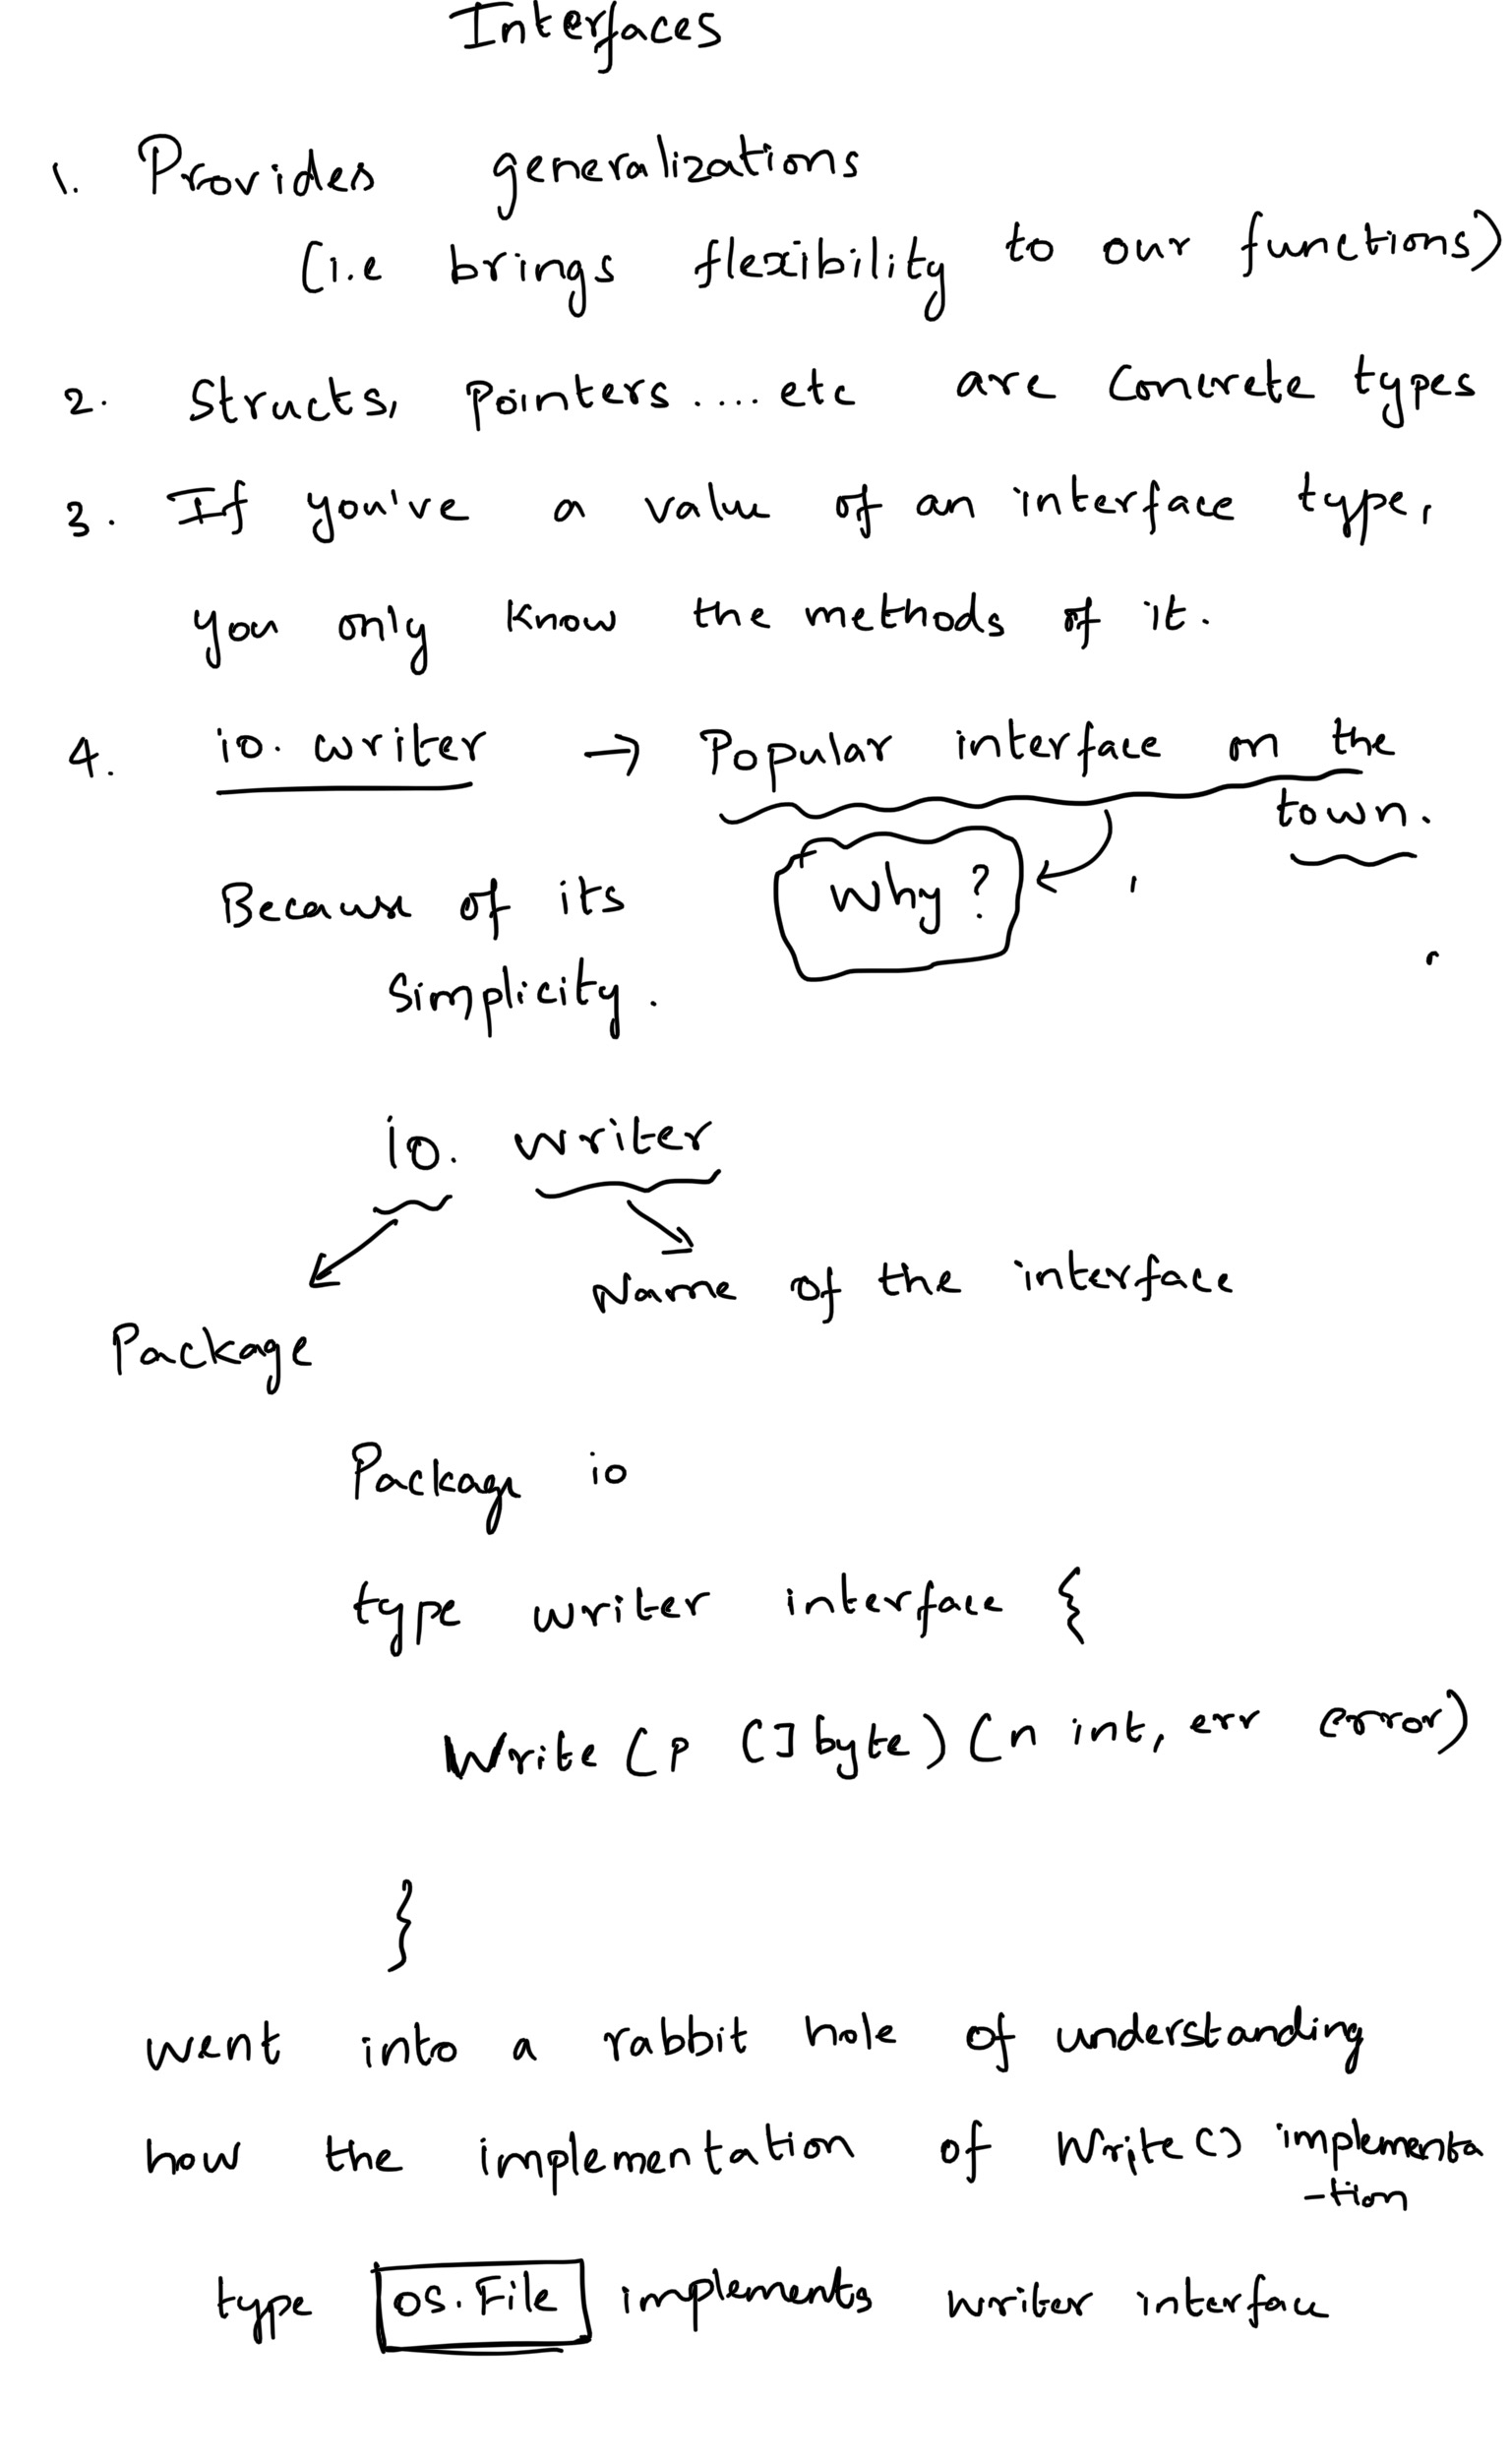 Interfaces
1. Provides generalizations
(i.e brings flexibility to our functions)
2. Structs, Pointers.... etc are Concrete types
3. If you've a value of an interface type,
you only know the methods of it.
4. io. writer → Popular interface on the
town.
Why?
Because of its
simplicity.
io. writer
Name of the interface
Package
Package io
type writer interface {
Write (p []byte) (n int, err error)
}
went into a rabbit hole of understanding
how the implementation of Write() implementa
-tion
type os.File implements writer interface